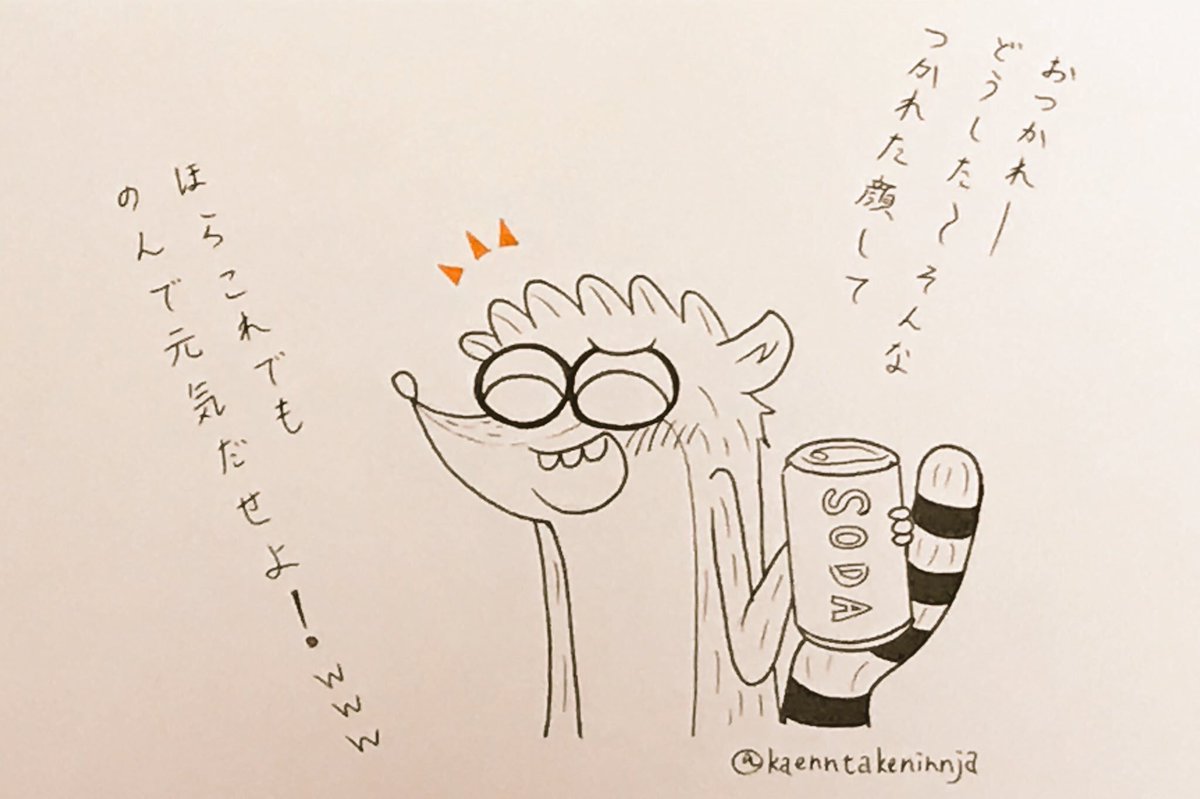 おつかれー
どうした〜そんな
つかれた顔して
ほらこれでも
のんで元気だせよー!www
SODA
@kaenntakeninnja